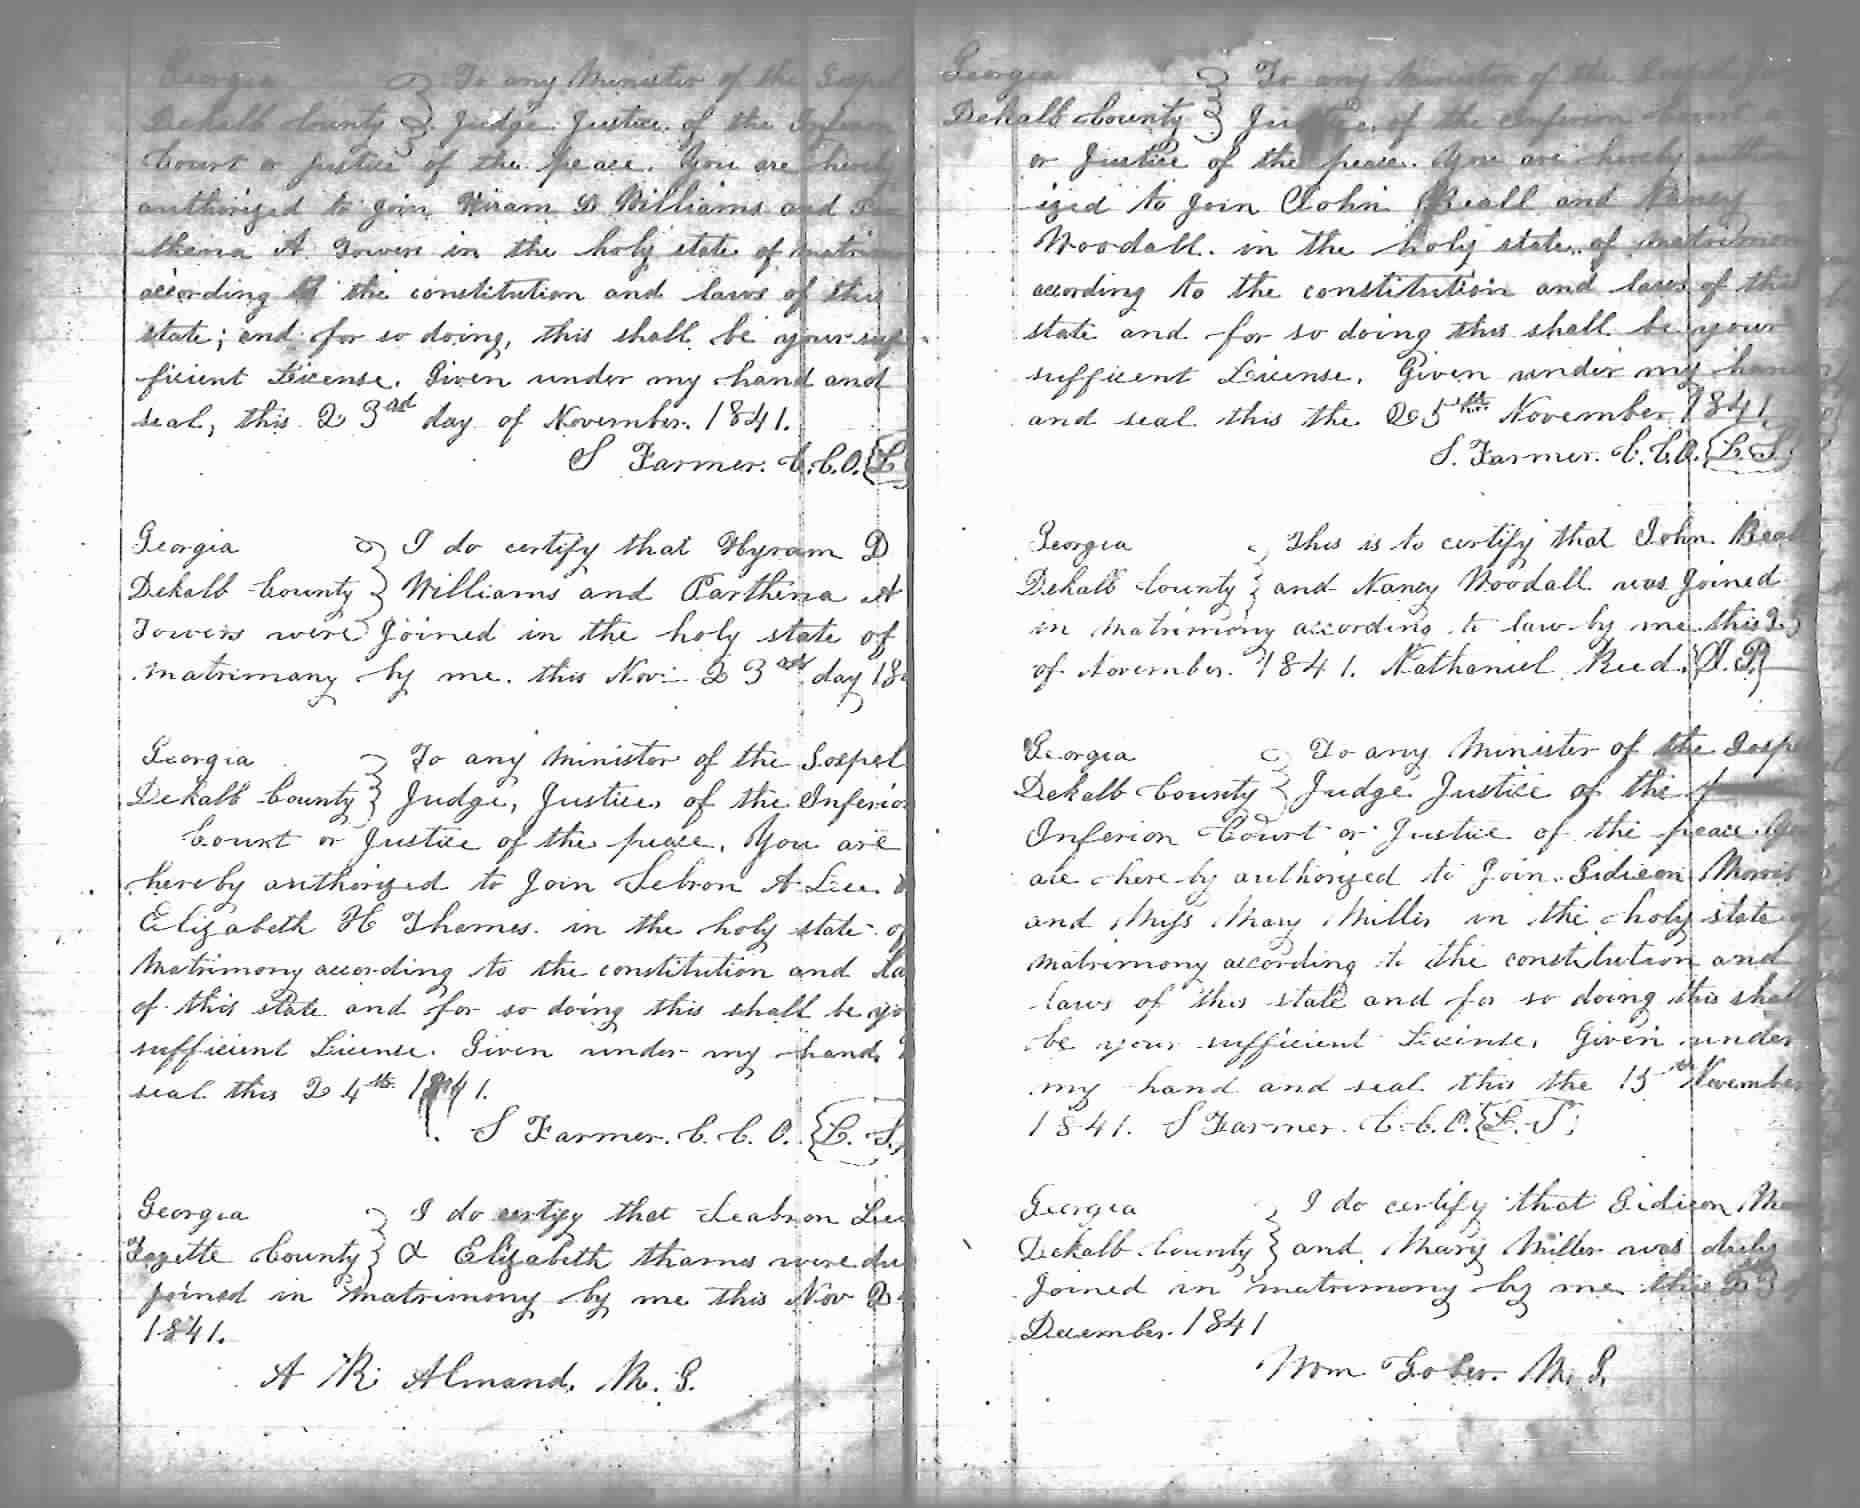 Georgia To any Minister of the Gospel
Dekalb County Judge Justice of the Inferior
Court or Justice of the peace. You are hereby
authorized to join Hiram D Williams and
thena A Towers in the holy state of
according to the constitution and laws of this
state; and for so doing, this shall be your suf
ficient License. Given under my hand and
seal, this 23rd day of November. 1841.
S Farmer. C.C.O. {L
Georgia I do certify that Hyram D
Dekalb County Williams and Parthena A
Towers were Joined in the holy state of
matrimany by me. this Nov: 23rd day 18
Georgia To any minister of the Gospel
Dekalb County Judge, Justice, of the Inferior
Court or Justice of the peace. You are
hereby authorized to join Sebron A Lee
Elizabeth H Thames. in the holy state of
Matrimony according to the constitution and la
of this state and for so doing this shall be yo
sufficient License. Given under my hand,
seal this 24th 1841.
S Farmer. C. C. O. {L. S.
Georgia I do certify that Seabron Lee
Fayette County & Elizabeth thames were du
joined in matrimony by me this Nov 2
1841.
A R. Almand. M. G.
Georgia To any Minister of the Gospel
Dekalb County Justice, of the Inferior Court
or Justice of the peace. You are hereby author
ized to join John Beall and Nancy
Woodall. in the holy state of matrimon
according to the constitution and laws of this
state and for so doing this shall be your
sufficent License. Given under my hand
and seal this the 25th November 1841.
S. Farmer. C.C.O. {L. S.}
Georgia This is to certify that John Beal
Dekalb County and Nancy Woodall was Joined
in matrimony according to law by me this 25
of November. 1841. Nathaniel Reed. {J. P.}
Georgia To any Minister of the Gospe
Dekalb County Judge Justice of the
Inferior Court or Justice of the peace. You
are here by authorized to Join. Gidieon Morris
and Miss Mary Miller in the holy state of
matrimony according to the constitution and
laws of this state and for so doing this shall
be your sufficient License. Given under
my hand and seal this the 15th November
1841. S Farmer. C. C. O. {L. S.}
Georgia I do certify that Gidieon Mo
Dekalb County and Mary Miller was duly
Joined in matrimony by me this 23 of
December. 1841
Wm Gober. M. G.